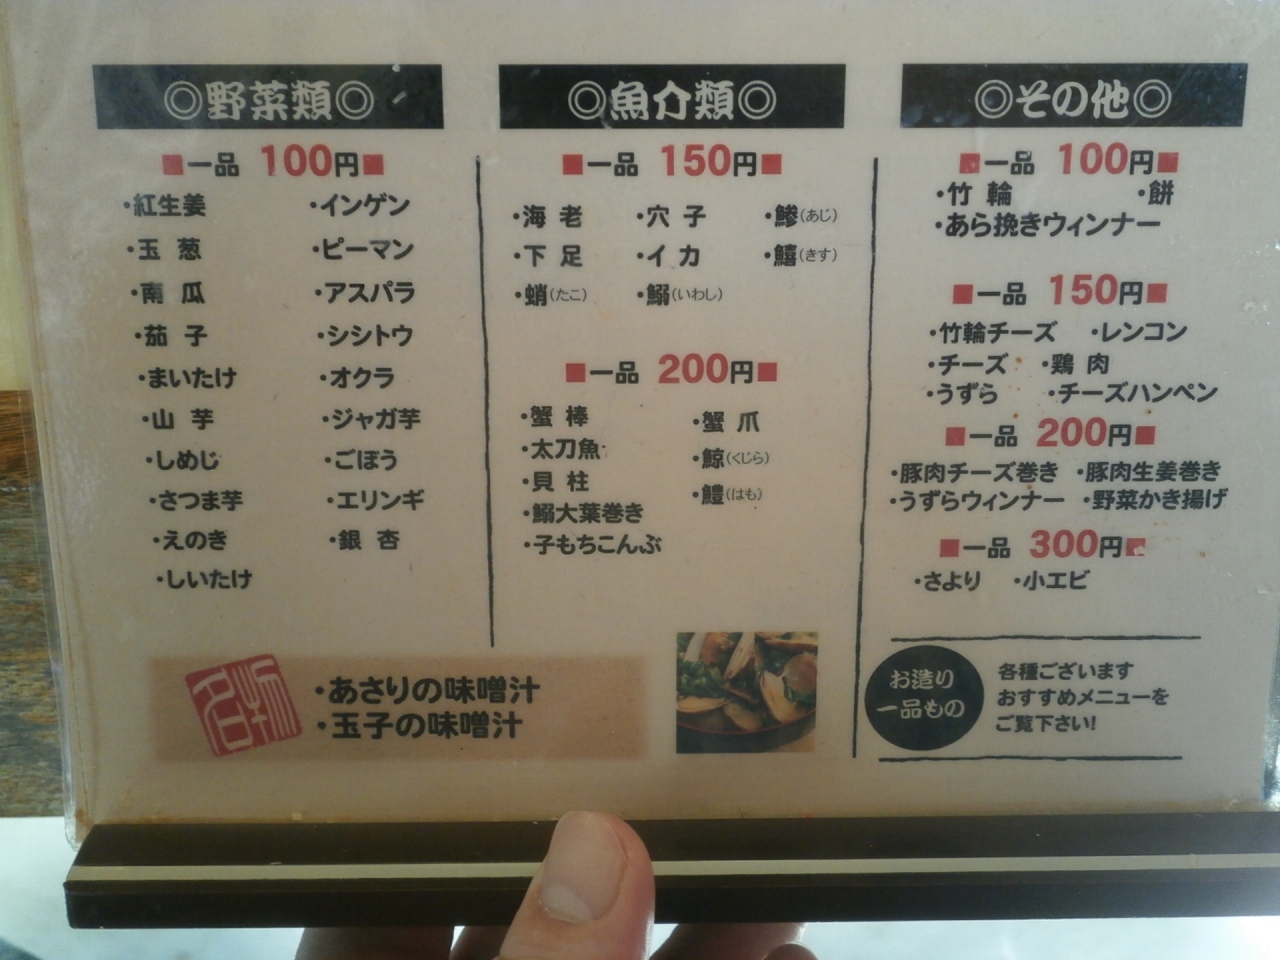 ◎野菜類◎
■一品 100円■
・紅生姜 ・インゲン
・玉葱 ・ピーマン
・南瓜 ・アスパラ
・茄子 ・シシトウ
・まいたけ ・オクラ
・山芋 ・ジャガ芋
・しめじ ・ごぼう
・さつま芋 ・エリンギ
・えのき ・銀杏
・しいたけ
◎魚介類◎
■一品 150円■
・海老 ・穴子 ・鯵(あじ)
・下足 ・イカ ・鱚(きす)
・蛸(たこ) ・鰯(いわし)
■一品 200円■
・蟹棒 ・蟹爪
・太刀魚 ・鯨(くじら)
・貝柱 ・鱧(はも)
・鰯大葉巻き
・子もちこんぶ
◎その他◎
■一品 100円■
・竹輪 ・餅
・あら挽きウィンナー
■一品 150円■
・竹輪チーズ ・レンコン
・チーズ ・鶏肉
・うずら ・チーズハンペン
■一品 200円■
・豚肉チーズ巻き ・豚肉生姜巻き
・うずらウィンナー ・野菜かき揚げ
■一品 300円■
・さより ・小エビ
名物
・あさりの味噌汁
・玉子の味噌汁
お造り
一品もの
各種ございます
おすすめメニューを
ご覧下さい!